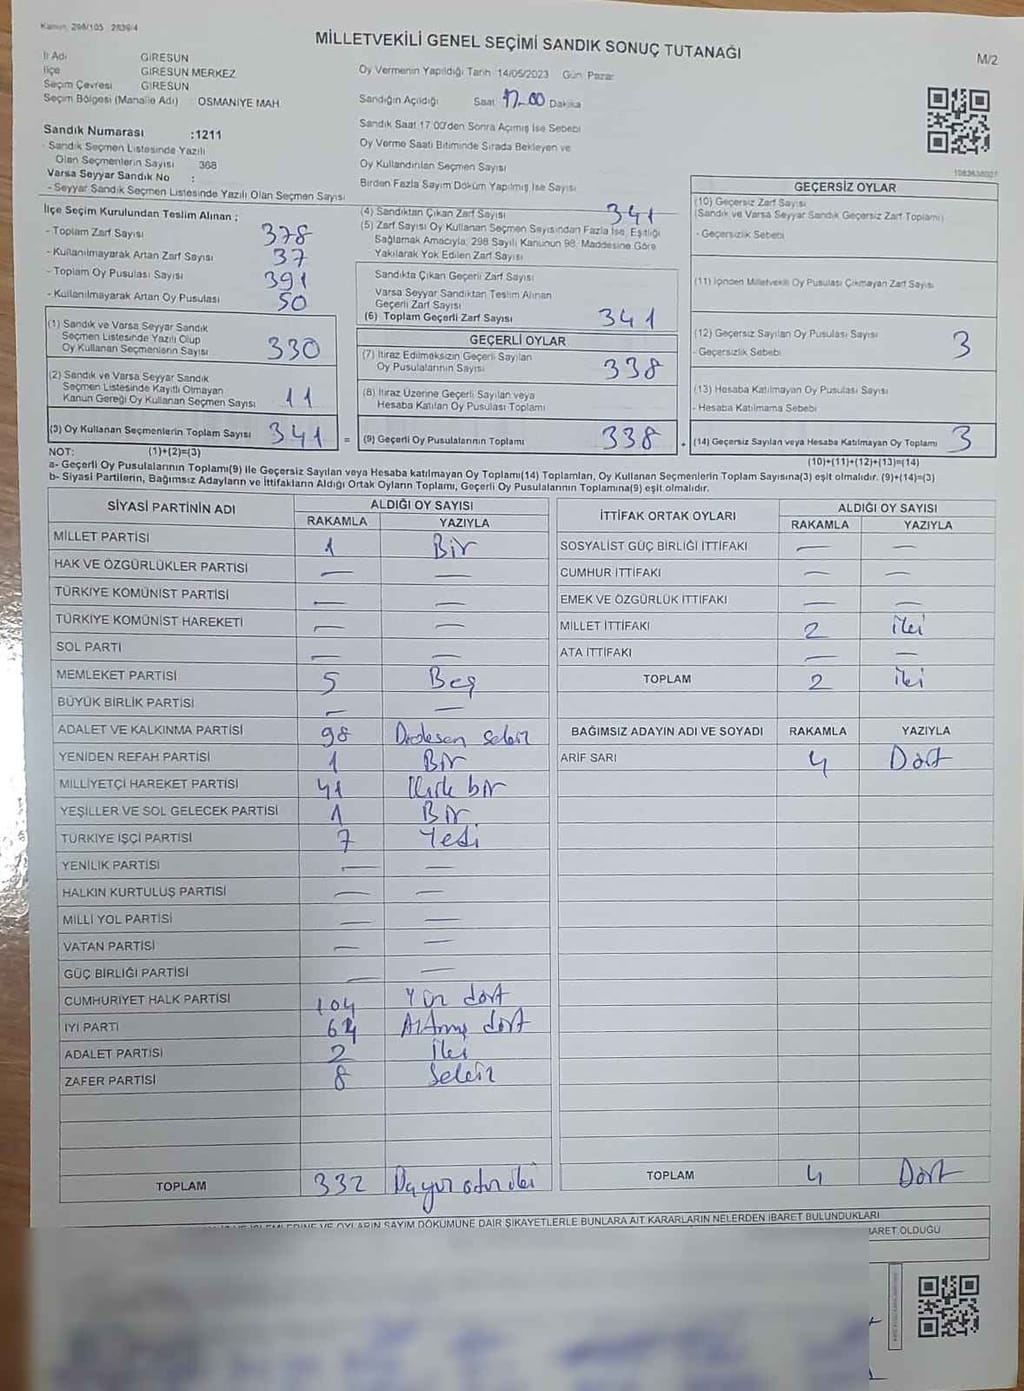 Kanun: 298/105 2839/4
MİLLETVEKİLİ GENEL SEÇİMİ SANDIK SONUÇ TUTANAĞI
M/2
İl Adı GİRESUN
İlçe GİRESUN MERKEZ
Seçim Çevresi GİRESUN
Seçim Bölgesi (Mahalle Adı) OSMANİYE MAH.
Sandık Numarası :1211
- Sandık Seçmen Listesinde Yazılı
Olan Seçmenlerin Sayısı 368
Varsa Seyyar Sandık No :
- Seyyar Sandık Seçmen Listesinde Yazılı Olan Seçmen Sayısı
Oy Vermenin Yapıldığı Tarih 14/05/2023 Gün Pazar
Sandığın Açıldığı Saat 17.00 Dakika
Sandık Saat 17:00'den Sonra Açımış İse Sebebi
Oy Verme Saati Bitiminde Sırada Bekleyen ve
Oy Kullandırılan Seçmen Sayısı
Birden Fazla Sayım Döküm Yapılmış İse Sayısı
İlçe Seçim Kurulundan Teslim Alınan :
- Toplam Zarf Sayısı 378
- Kullanılmayarak Artan Zarf Sayısı 37
- Toplam Oy Pusulası Sayısı 391
- Kullanılmayarak Artan Oy Pusulası 50
(1) Sandık ve Varsa Seyyar Sandık
Seçmen Listesinde Yazılı Olup
Oy Kullanan Seçmenlerin Sayısı 330
(2) Sandık ve Varsa Seyyar Sandık
Seçmen Listesinde Kayıtlı Olmayan
Kanun Gereği Oy Kullanan Seçmen Sayısı 11
(3) Oy Kullanan Seçmenlerin Toplam Sayısı 341 =
(4) Sandıktan Çıkan Zarf Sayısı 341
(5) Zarf Sayısı Oy Kullanan Seçmen Sayısından Fazla İse, Eşitliği
Sağlamak Amacıyla, 298 Sayılı Kanunun 98. Maddesine Göre
Yakılarak Yok Edilen Zarf Sayısı
Sandıkta Çıkan Geçerli Zarf Sayısı
Varsa Seyyar Sandıktan Teslim Alınan
Geçerli Zarf Sayısı
(6) Toplam Geçerli Zarf Sayısı 341
GEÇERLİ OYLAR
(7) İtiraz Edilmeksizin Geçerli Sayılan
Oy Pusulalarının Sayısı 338
(8) İtiraz Üzerine Geçerli Sayılan veya
Hesaba Katılan Oy Pusulası Toplamı
(9) Geçerli Oy Pusulalarının Toplamı 338
GEÇERSİZ OYLAR
(10) Geçersiz Zarf Sayısı
(Sandık ve Varsa Seyyar Sandık Geçersiz Zarf Toplamı)
- Geçersizlik Sebebi
(11) İçinden Milletvekili Oy Pusulası Çıkmayan Zarf Sayısı
(12) Geçersiz Sayılan Oy Pusulası Sayısı 3
- Geçersizlik Sebebi
(13) Hesaba Katılmayan Oy Pusulası Sayısı
- Hesaba Katılmama Sebebi
(14) Geçersiz Sayılan veya Hesaba Katılmayan Oy Toplamı 3
NOT: (1)+(2)=(3)
(10)+(11)+(12)+(13)=(14)
a- Geçerli Oy Pusulalarının Toplamı(9) ile Geçersiz Sayılan veya Hesaba katılmayan Oy Toplamı(14) Toplamları, Oy Kullanan Seçmenlerin Toplam Sayısına(3) eşit olmalıdır. (9)+(14)=(3)
b- Siyasi Partilerin, Bağımsız Adayların ve İttifakların Aldığı Ortak Oyların Toplamı, Geçerli Oy Pusulalarının Toplamına(9) eşit olmalıdır.
SİYASİ PARTİNİN ADI ALDIĞI OY SAYISI
RAKAMLA YAZIYLA
MİLLET PARTİSİ 1 Bir
HAK VE ÖZGÜRLÜKLER PARTİSİ — —
TÜRKİYE KOMÜNİST PARTİSİ — —
TÜRKİYE KOMÜNİST HAREKETİ — —
SOL PARTİ — —
MEMLEKET PARTİSİ 5 Beş
BÜYÜK BİRLİK PARTİSİ — —
ADALET VE KALKINMA PARTİSİ 98 Doksan Sekiz
YENİDEN REFAH PARTİSİ 1 Bir
MİLLİYETÇİ HAREKET PARTİSİ 41 Kırk bir
YEŞİLLER VE SOL GELECEK PARTİSİ 1 Bir
TÜRKİYE İŞÇİ PARTİSİ 7 Yedi
YENİLİK PARTİSİ — —
HALKIN KURTULUŞ PARTİSİ — —
MİLLİ YOL PARTİSİ — —
VATAN PARTİSİ — —
GÜÇ BİRLİĞİ PARTİSİ — —
CUMHURİYET HALK PARTİSİ 104 Yüz dört
İYİ PARTİ 64 Altmış dört
ADALET PARTİSİ 2 İki
ZAFER PARTİSİ 8 Sekiz
TOPLAM 332
İTTİFAK ORTAK OYLARI ALDIĞI OY SAYISI
RAKAMLA YAZIYLA
SOSYALİST GÜÇ BİRLİĞİ İTTİFAKI — —
CUMHUR İTTİFAKI — —
EMEK VE ÖZGÜRLÜK İTTİFAKI — —
MİLLET İTTİFAKI 2 iki
ATA İTTİFAKI — —
TOPLAM 2 iki
BAĞIMSIZ ADAYIN ADI VE SOYADI RAKAMLA YAZIYLA
ARİF SARI 4 Dört
TOPLAM 4 Dört
OYLARIN SAYIM DÖKÜMÜNE DAİR ŞİKAYETLERLE BUNLARA AİT KARARLARIN NELERDEN İBARET BULUNDUKLARI
İBARET OLDUĞU